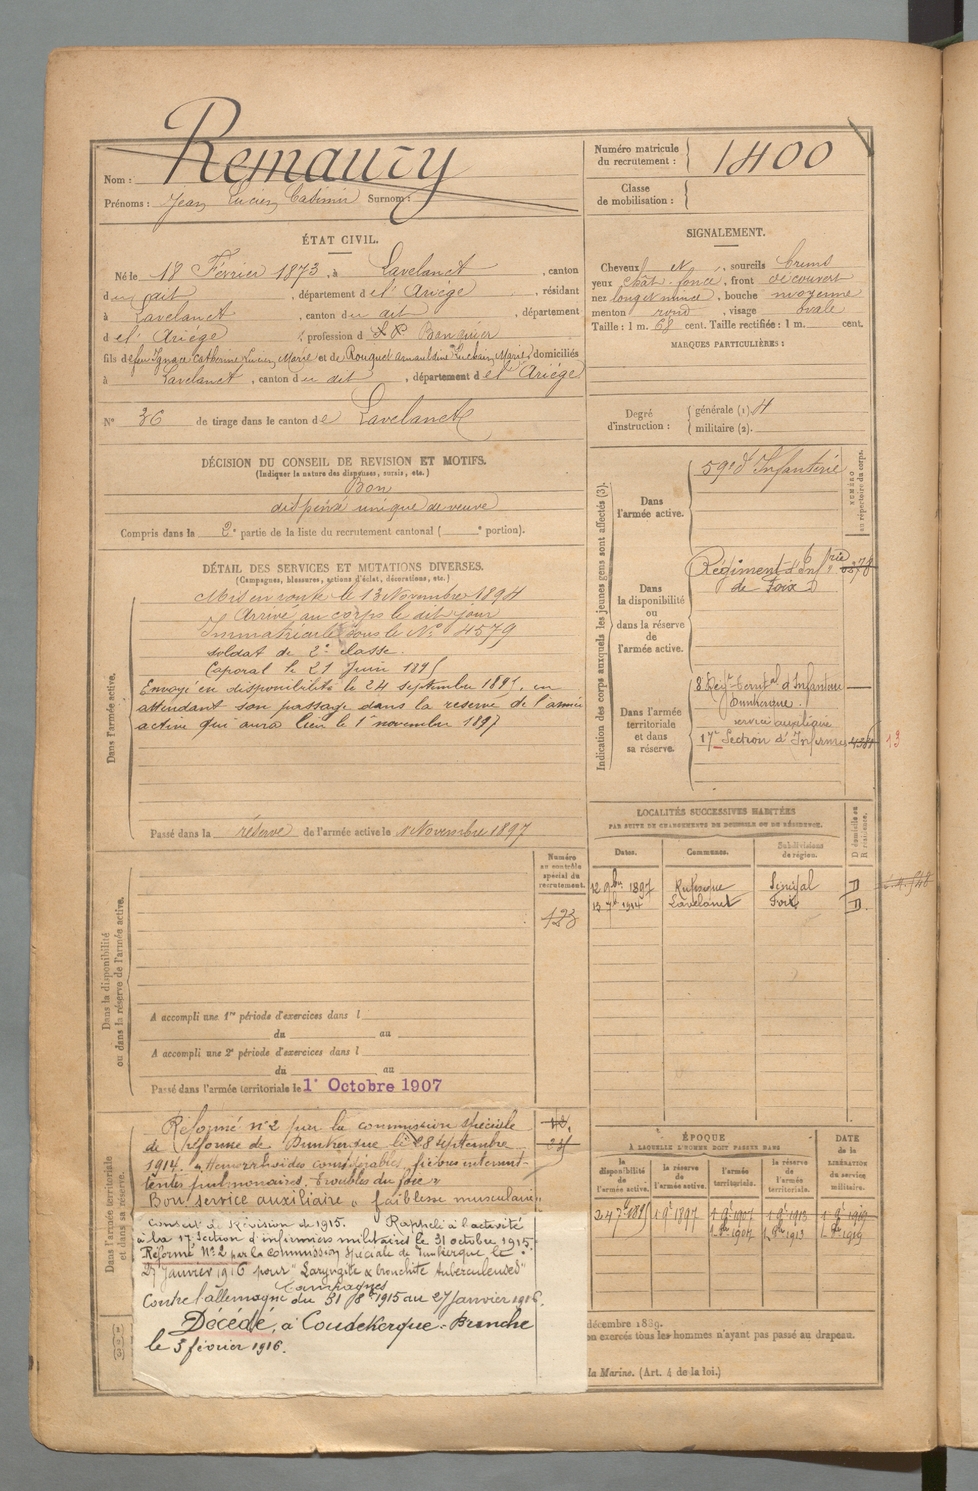 Nom : Remaury
Prénoms : Jean Lucien Casimir Surnom :
Numéro matricule du recrutement : 1400
Classe de mobilisation :
ÉTAT CIVIL.
Né le 18 Février 1873, à Lavelanet, canton
du dit, département de l'Ariège, résidant
à Lavelanet, canton du dit, département
de l'Ariège, profession d Banquier
fils de feu Ignace Catherine Lucien Marie et de Rouquet domiciliés
à Lavelanet, canton du dit, département de l'Ariège
N° 36 de tirage dans le canton de Lavelanet
SIGNALEMENT.
Cheveux et, sourcils bruns
yeux chât. foncé, front découvert
nez long et mince, bouche moyenne
menton rond, visage ovale
Taille : 1 m. 68 cent. Taille rectifiée : 1 m. cent.
MARQUES PARTICULIÈRES :
Degré d'instruction : générale (1). 4
militaire (2).
DÉCISION DU CONSEIL DE REVISION ET MOTIFS.
(Indiquer la nature des dispenses, sursis, etc.)
Bon
dispensé unique de veuve
Compris dans la 2e partie de la liste du recrutement cantonal ( e portion).
DÉTAIL DES SERVICES ET MUTATIONS DIVERSES.
(Campagnes, blessures, actions d'éclat, décorations, etc.)
Dans l'armée active.
Mis en route le 13 Novembre 1894
Arrivé au corps le dit jour
Immatriculé sous le No 4579
Soldat de 2e classe.
Caporal le 21 Juin 1895
Envoyé en disponibilité le 24 septembre 1895, en
attendant son passage dans la réserve de l'armée
active qui aura lieu le 1er novembre 1897
Passé dans la réserve de l'armée active le 1 Novembre 1897
Indication des corps auxquels les jeunes gens sont affectés (3).
NUMÉRO au répertoire du corps.
Dans l'armée active.
59e d'Infanterie
Dans la disponibilité ou dans la réserve de l'armée active.
Régiment d'Infrie
de Foix D
Dans l'armée territoriale et dans sa réserve.
8 Régt territal d'Infanterie
Dunkerque
service auxiliaire
17e Section d'Infirmiers
13
LOCALITÉS SUCCESSIVES HABITÉES
PAR SUITE DE CHANGEMENTS DE DOMICILE OU DE RÉSIDENCE.
Dates. Communes. Subdivisions de région. D domicile ou R résidence.
12 9bre 1897 Rufisque Sénégal R
Lavelanet Foix R
Dans la disponibilité ou dans la réserve de l'armée active.
Numéro au contrôle spécial du recrutement.
123
A accompli une 1re période d'exercices dans l
du au
A accompli une 2e période d'exercices dans l
du au
Passé dans l'armée territoriale le 1er Octobre 1907
Dans l'armée territoriale et dans sa réserve.
Réformé n°2 par la commission spéciale
de réforme de Dunkerque le 28 septembre
1914. "Hémorrhoïdes considérables, fièvres intermit-
tentes pulmonaires. Troubles du foie"
Bon service auxiliaire "faiblesse musculaire"
Conseil de Révision de 1915. Rappelé à l'activité
à la 17 section d'infirmiers militaires le 31 octobre 1915.
Réformé N°2 par la commission spéciale de Dunkerque le
27 Janvier 1916 pour "Laryngite & bronchite tuberculeuses"
Campagnes
Contre l'allemagne du 31 8bre 1915 au 27 Janvier 1916.
Décédé, à Coudekerque-Branche
le 5 février 1916.
ÉPOQUE
À LAQUELLE L'HOMME DOIT PASSER DANS
DATE DE LA LIBÉRATION du service militaire.
la disponibilité de l'armée active. la réserve de l'armée active. l'armée territoriale. la réserve de l'armée territoriale.
24 7bre 1895 1 9bre 1897 1 9bre 1907 1 9bre 1913 1 9bre 1919
1 8bre 1907 1 8bre 1913 1 8bre 1919
décembre 1889.
exercés tous les hommes n'ayant pas passé au drapeau.
la Marine. (Art. 4 de la loi.)